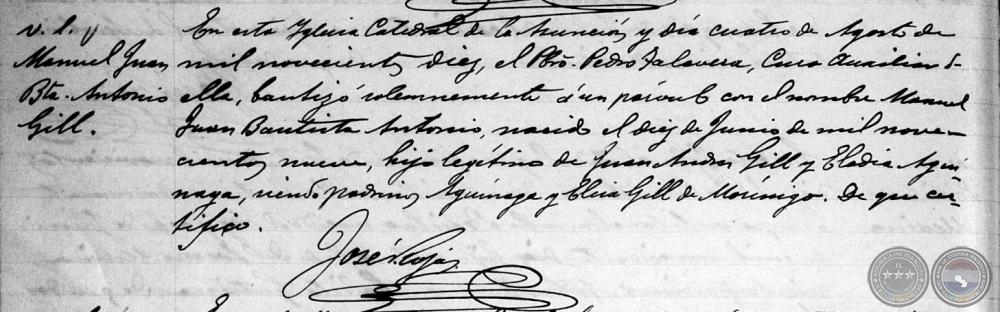 v. l. y
Manuel Juan
Bta. Antonio
Gill.
En esta Yglesia Catedral de la Asunción y día cuatro de Agosto de
mil novecientos diez, el Pbro. Pedro Talavera, Cura Auxiliar d-
ella, bautizó solemnemente á un párvulo con el nombre Manuel
Juan Bautista Antonio, nacido el diez de Junio de mil nove-
cientos nueve, hijo legítimo de Juan Andrés Gill y Eladia Agui-
naga, siendo padrinos Aguinaga y Elisa Gill de Morínigo. De que cer-
tífico.